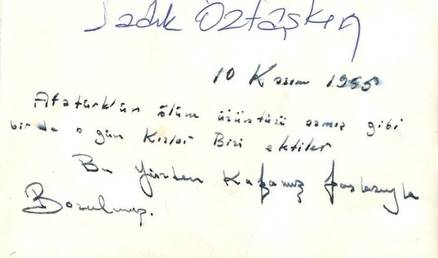 Sadık Öztaşkın
10 Kasım 1955
Atatürk'ün ölüm üzüntüsü azmış gibi
bir de o gün Kızlar Bizi ektiler
Bu yüzden Kafamız fazlasıyla
Bozulmuş.